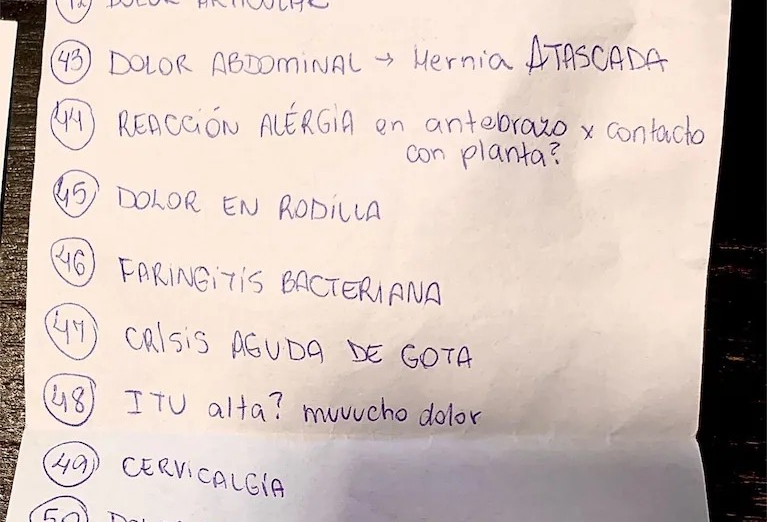 42 DOLOR ARTICULAR
43 DOLOR ABDOMINAL → Hernia ATASCADA
44 REACCIÓN ALÉRGIA en antebrazo x contacto
con planta?
45 DOLOR EN RODILLA
46 FARINGITIS BACTERIANA
47 CRISIS AGUDA DE GOTA
48 ITU alta? muuucho dolor
49 CERVICALGÍA
50